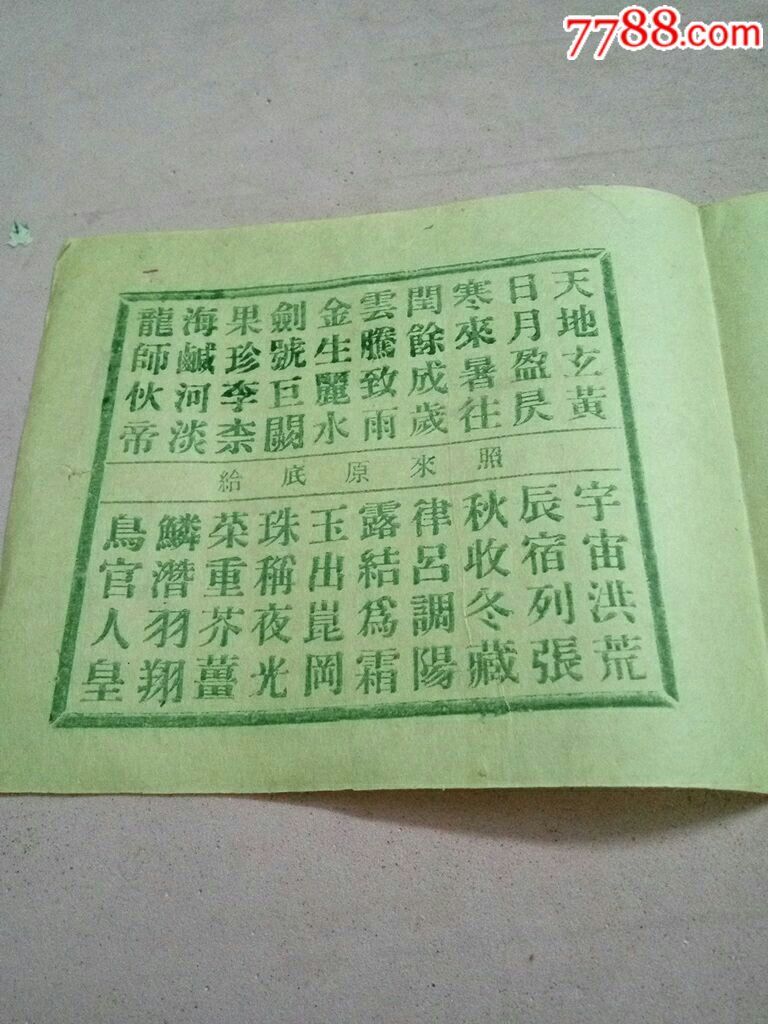 7788.com
天地玄黃
日月盈昃
寒來暑往
閏餘成歲
雲騰致雨
金生麗水
劍號巨闕
果珍李柰
海鹹河淡
龍師伙帝
照來原底給
宇宙洪荒
辰宿列張
秋收冬藏
律呂調陽
露結爲霜
玉出崑岡
珠稱夜光
菜重芥薑
鱗潛羽翔
鳥官人皇